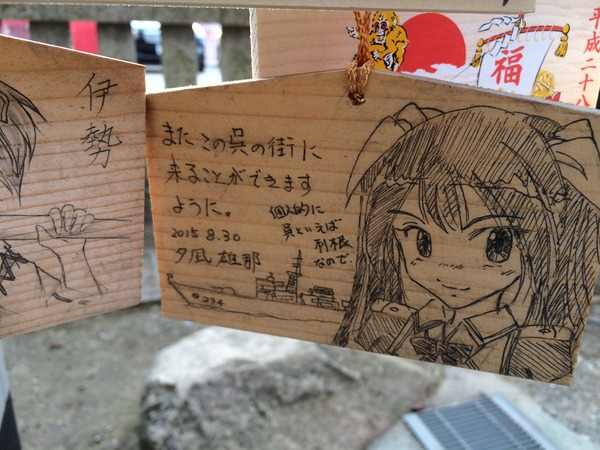 伊勢
また この呉の街に
来ることができます
ように。
2015.8.30
夕凪 雄那
個人的に
呉といえば
利根
なので
234
福
平成二十八